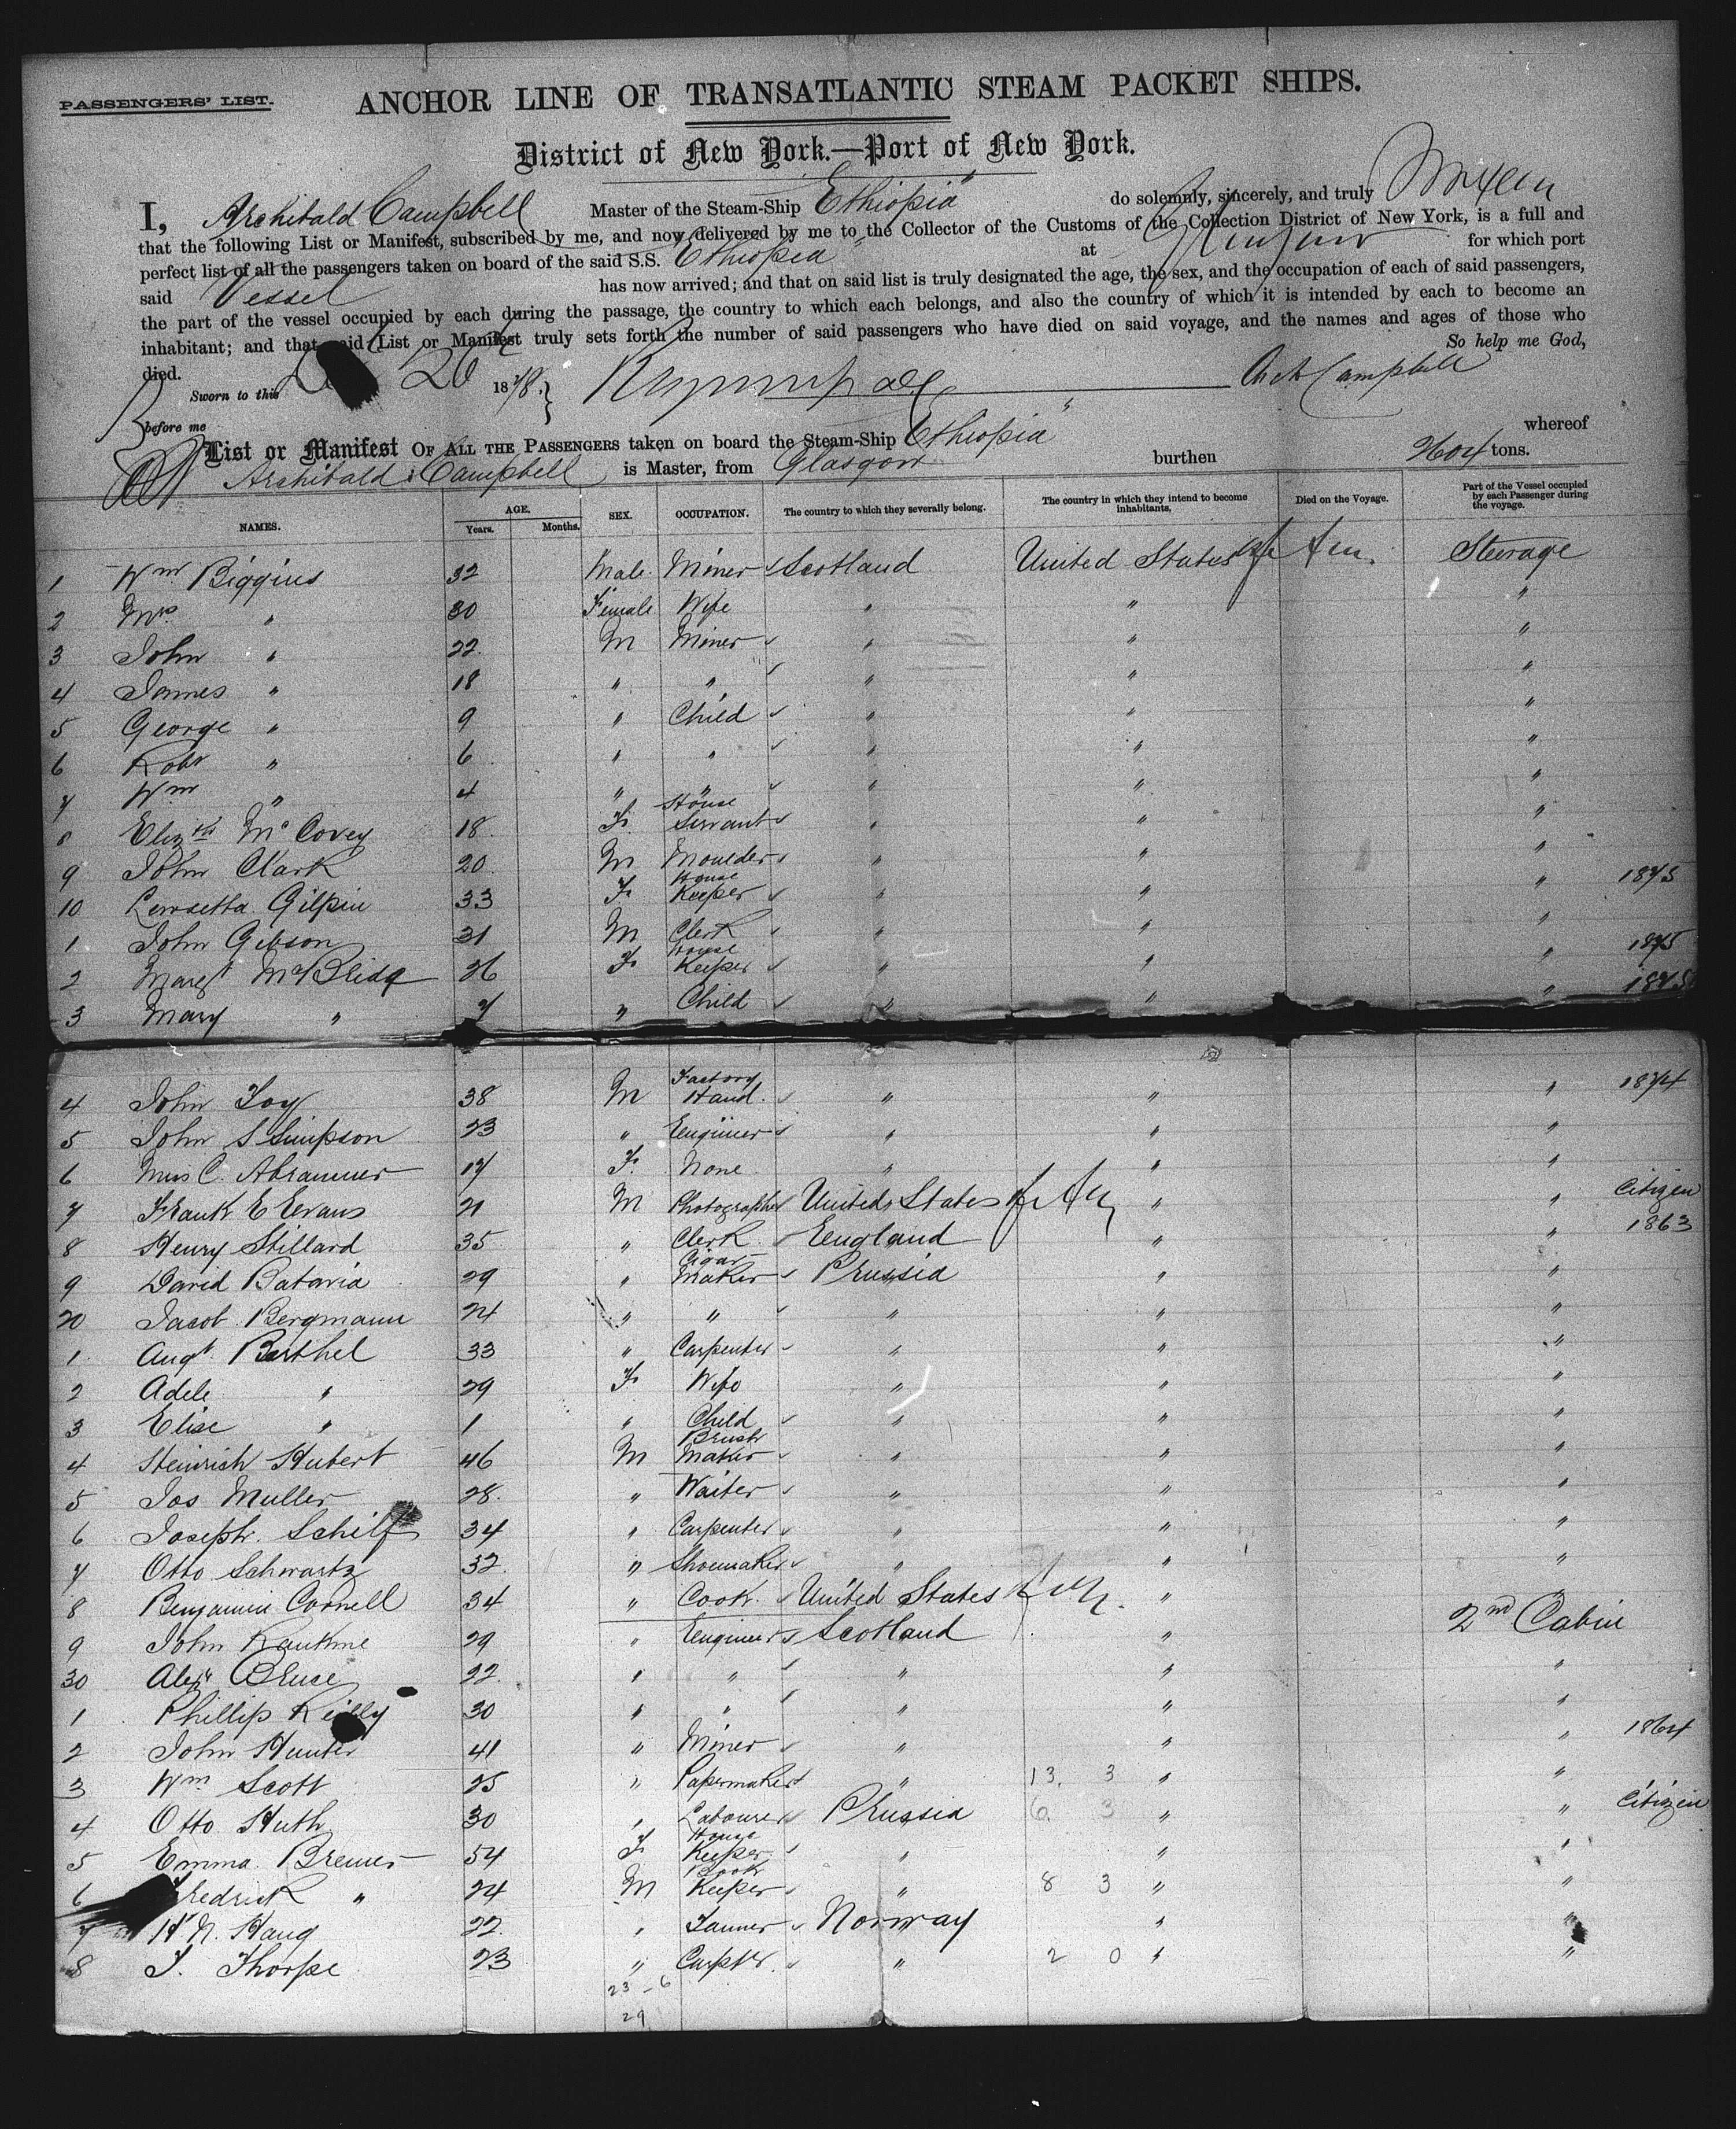 PASSENGERS' LIST.
ANCHOR LINE OF TRANSATLANTIC STEAM PACKET SHIPS.
District of New York.—Port of New York.
I, Archibald Campbell Master of the Steam-Ship Ethiopia" do solemnly, sincerely, and truly
that the following List or Manifest, subscribed by me, and now delivered by me to the Collector of the Customs of the Collection District of New York, is a full and
perfect list of all the passengers taken on board of the said S.S. "Ethiopia" at Glasgow for which port
said Vessel has now arrived; and that on said list is truly designated the age, the sex, and the occupation of each of said passengers,
the part of the vessel occupied by each during the passage, the country to which each belongs, and also the country of which it is intended by each to become an
inhabitant; and that said List or Manifest truly sets forth the number of said passengers who have died on said voyage, and the names and ages of those who
died. So help me God,
Sworn to this 26 1878. Arch Campbell
before me
List or Manifest OF ALL THE PASSENGERS taken on board the Steam-Ship Ethiopia" whereof
Archibald Campbell is Master, from Glasgow burthen 2604 tons.
NAMES. AGE. Years. Months. SEX. OCCUPATION. The country to which they severally belong. The country in which they intend to become inhabitants. Died on the Voyage. Part of the Vessel occupied by each Passenger during the voyage.
1 Wm Biggins 32 Male Miner Scotland United States of Am. Steerage
2 Mrs " 30 Female Wife " " "
3 John " 22 M Miner " " "
4 James " 18 " " " " "
5 George " 9 " Child " " "
6 Robt " 6 " " " " "
7 Wm " 4 " " " " "
8 Elizth McCovey 18 F House Servant " " "
9 John Clark 20 M Moulder " " "
10 Gilpin 33 F House Keeper " " " 1875
1 John Gibson 31 M Clerk " " "
2 Margt McBride 26 F House Keeper " " " 1875
3 Mary " 7 " Child " " " 1875
4 John Foy 38 M Factory Hand " " " 1874
5 John S Simpson 23 " Engineer " " "
6 Miss C. 17 F None " " "
7 Frank E Evans 21 M Photographer United States of Am " " Citizen
8 Henry Stillard 35 " Clerk England " " 1863
9 David Batavia 29 " Cigar Maker Prussia " "
20 Jacob Bergmann 24 " " " " "
1 Augt Barthel 33 " Carpenter " " "
2 Adele " 29 F Wife " " "
3 Elise " 1 " Child " " "
4 Heinrich Hubert 46 M Brush Maker " " "
5 Jos Muller 28 " Waiter " " "
6 Joseph Schilf 34 " Carpenter " " "
7 Otto Schwartz 32 " Shoemaker " " "
8 Benjamin Cornell 34 " Cook United States of Am. " "
9 John 29 " Engineer Scotland " 2nd Cabin
30 Alexr Bruce 22 " " " " "
1 Phillip Reilly 30 " " " " "
2 John Hunter 41 " Miner " " " 1864
3 Wm Scott 25 " Papermaker " 13. 3 " "
4 Otto Huth 30 " Labourer Prussia 6 3 " " Citizen
5 Emma Bremer 54 F House Keeper " " "
6 Fredrick " 24 M Book Keeper " 8 3 " "
7 H N. Haug 22 " Tanner Norway " "
8 T. Thorpe 23 " Carpter. " 2 0 " "
23 - 6
29